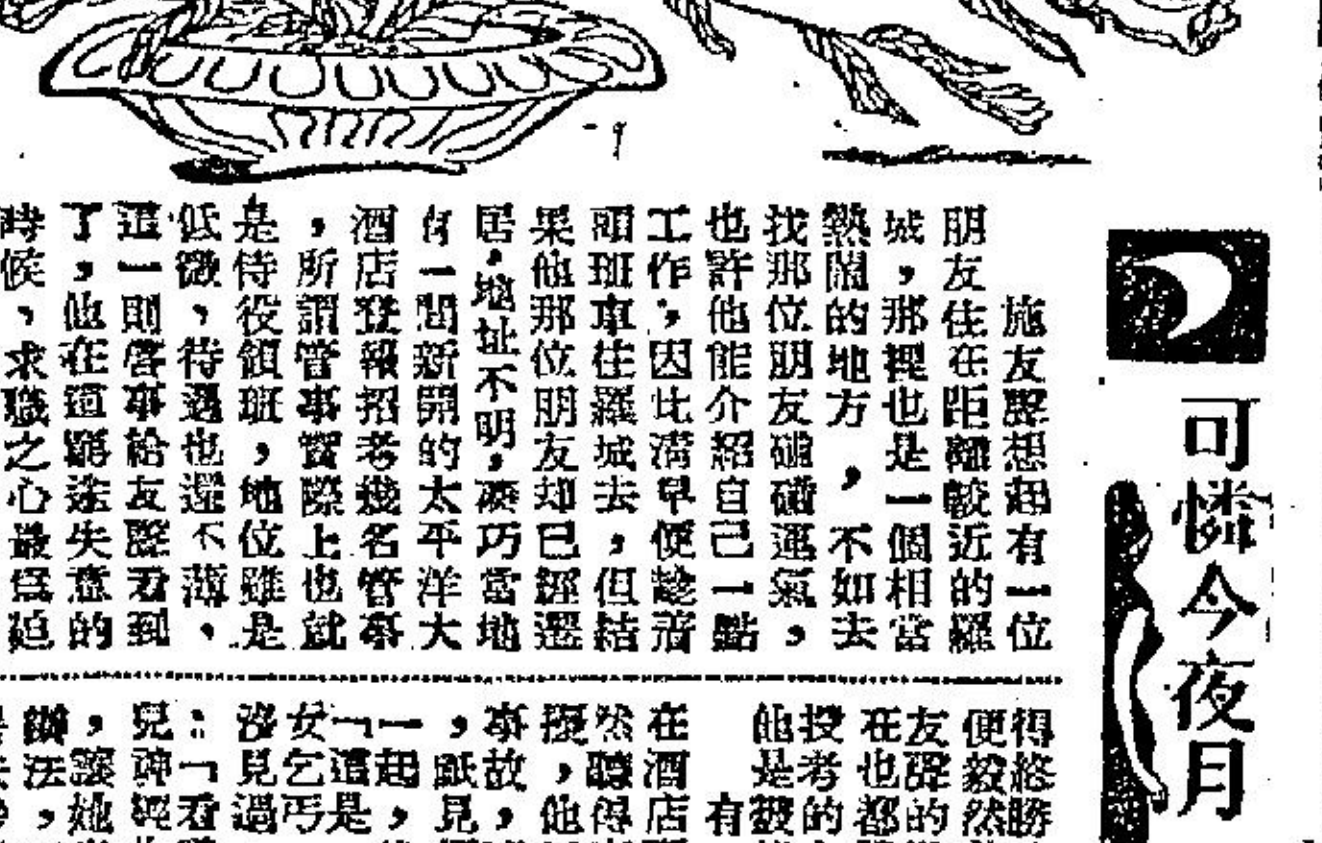 可憐今夜月
施友聲想起有一位
朋友住在距離較近的羅
城，那裡也是一個相當
熱鬧的地方，不如去
找那位朋友碰碰運氣，
也許他能介紹自己一點
工作，因此清早便趁着
頭班車往羅城去，但結
果他那位朋友却已經遷
居，地址不明，凑巧當地
有一間新開的太平洋大
酒店登報招考幾名管事
，所謂管事實際上也就
是侍役領班，地位雖是
低微，待遇也還不薄，
這一則啓事給友聲看到
了，他在這窮途失意的
時候，求職之心最爲迫
得終勝
便毅然
友聲的
在也都
投考的
他是
有
在酒店
然聽得
擬，他
事故，
，祇見
一起，
「這是
女乞丐
沒見過
：「看
見神經
，讓她